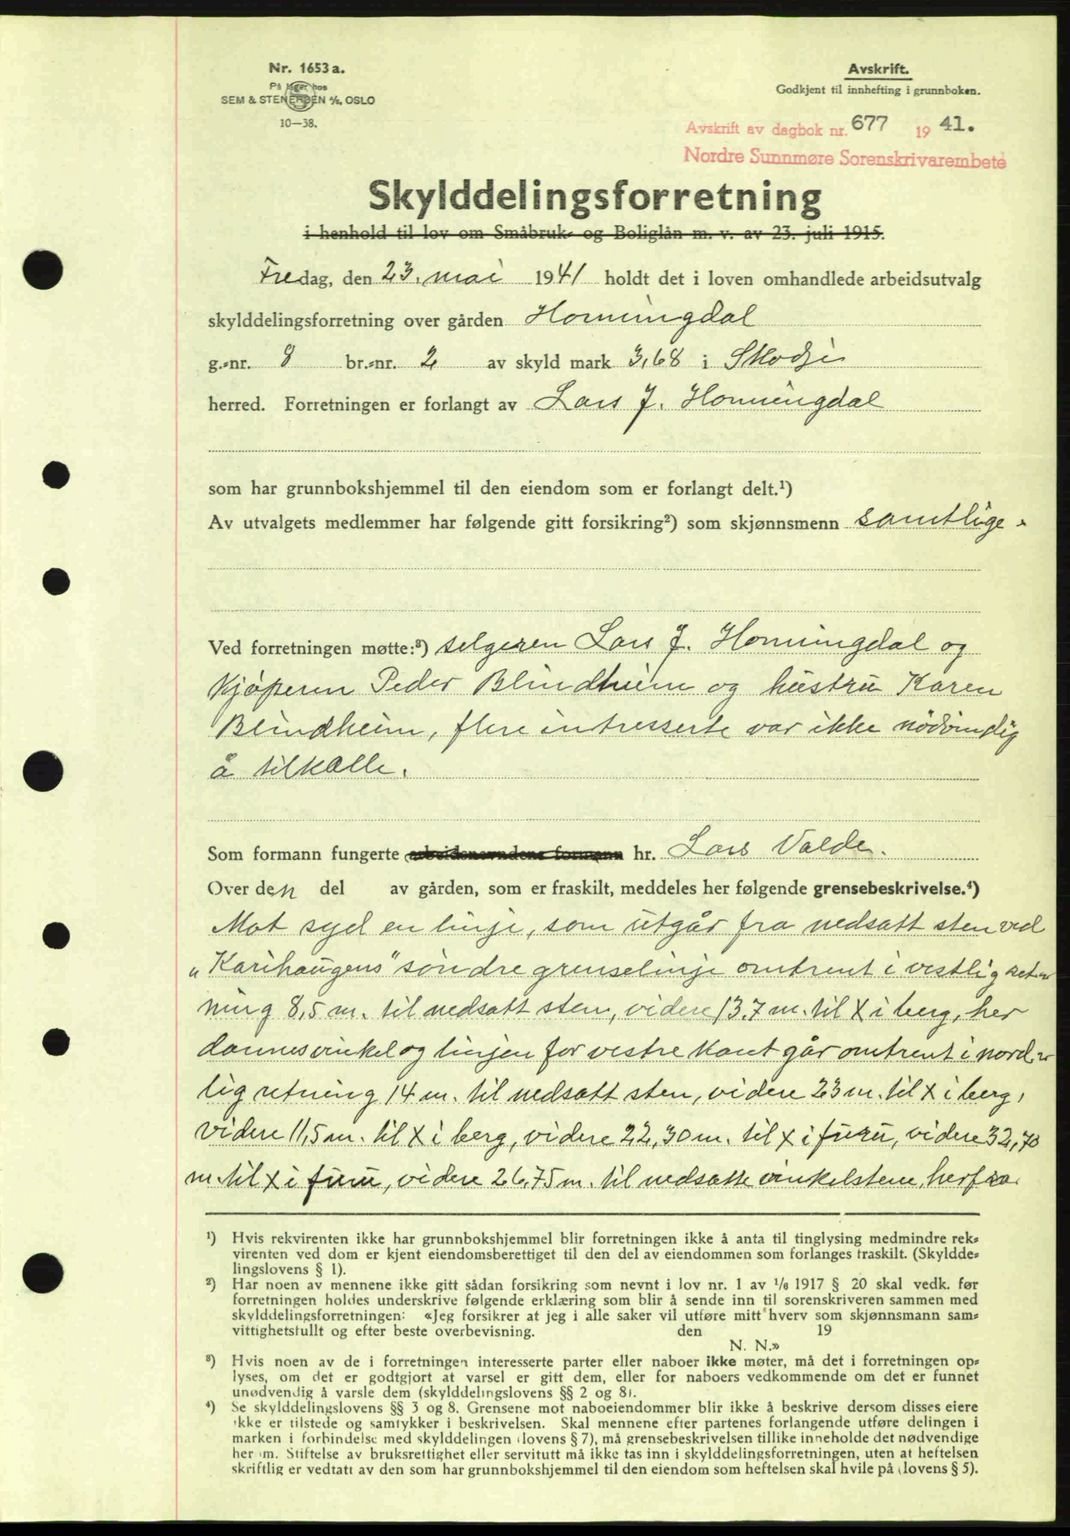 Nr. 1653 a.
På lager hos
SEM & STENERSEN A/S, OSLO
10—38.
Avskrift.
Godkjent til innhefting i grunnboken.
Avskrift av dagbok nr. 677 19 41.
Nordre Sunnmøre Sorenskrivarembete
Skylddelingsforretning
i henhold til lov om Småbruk- og Boliglån m. v. av 23. juli 1915.
Fredag, den 23. mai 1941 holdt det i loven omhandlede arbeidsutvalg
skylddelingsforretning over gården Horningdal
g.-nr. 8 br.-nr. 2 av skyld mark 3,68 i Skodje
herred. Forretningen er forlangt av Lars J. Horningdal
som har grunnbokshjemmel til den eiendom som er forlangt delt.¹)
Av utvalgets medlemmer har følgende gitt forsikring²) som skjønnsmenn samtlige.
Ved forretningen møtte:³) selgeren Lars J. Horningdal og
kjøperen Peder Blindheim og hustru Karen
Blindheim, flere intresserte var ikke nødvendig
å tilkalle.
Som formann fungerte arbeidsnevndens formann hr. Lars Valde.
Over den del av gården, som er fraskilt, meddeles her følgende grensebeskrivelse.⁴)
Mot syd en linje, som utgår fra nedsatt sten ved
"Karihaugens" søndre grenselinje omtrent i vestlig ret-
ning 8,5 m. til nedsatt sten, videre 13,7 m. til X i berg, her
dannes vinkel og linjen for vestre kant går omtrent i nord-
lig retning 14 m. til nedsatt sten, videre 23 m. til X i berg,
videre 11,5 m. til X i berg, videre 22,30 m. til X i furu, videre 32,70
m. til X i furu, videre 26,75 m. til nedsatte vinkelstene, herfra
¹) Hvis rekvirenten ikke har grunnbokshjemmel blir forretningen ikke å anta til tinglysing medmindre rek-
virenten ved dom er kjent eiendomsberettiget til den del av eiendommen som forlanges fraskilt. (Skyldde-
lingslovens § 1).
²) Har noen av mennene ikke gitt sådan forsikring som nevnt i lov nr. 1 av 1/6 1917 § 20 skal vedk. før
forretningen holdes underskrive følgende erklæring som blir å sende inn til sorenskriveren sammen med
skylddelingsforretningen: «Jeg forsikrer at jeg i alle saker vil utføre mitt hverv som skjønnsmann sam-
vittighetsfullt og efter beste overbevisning. den 19
N. N.»
³) Hvis noen av de i forretningen interesserte parter eller naboer ikke møter, må det i forretningen op-
lyses, om det er godtgjort at varsel er gitt dem, eller for naboers vedkommende om det er funnet
unødvendig å varsle dem (skylddelingslovens §§ 2 og 8).
⁴) Se skylddelingslovens §§ 3 og 8. Grensene mot naboeiendommer blir ikke å beskrive dersom disses eiere
ikke er tilstede og samtykker i beskrivelsen. Skal mennene efter partenes forlangende utføre delingen i
marken i forbindelse med skylddelingen (lovens § 7), må grensebeskrivelsen tillike inneholde det nødvendige
her om. Stiftelse av bruksrettighet eller servitutt må ikke tas inn i skylddelingsforretningen, uten at heftelsen
skriftlig er vedtatt av den som har grunnbokshjemmel til den eiendom som heftelsen skal hvile på (lovens § 5).